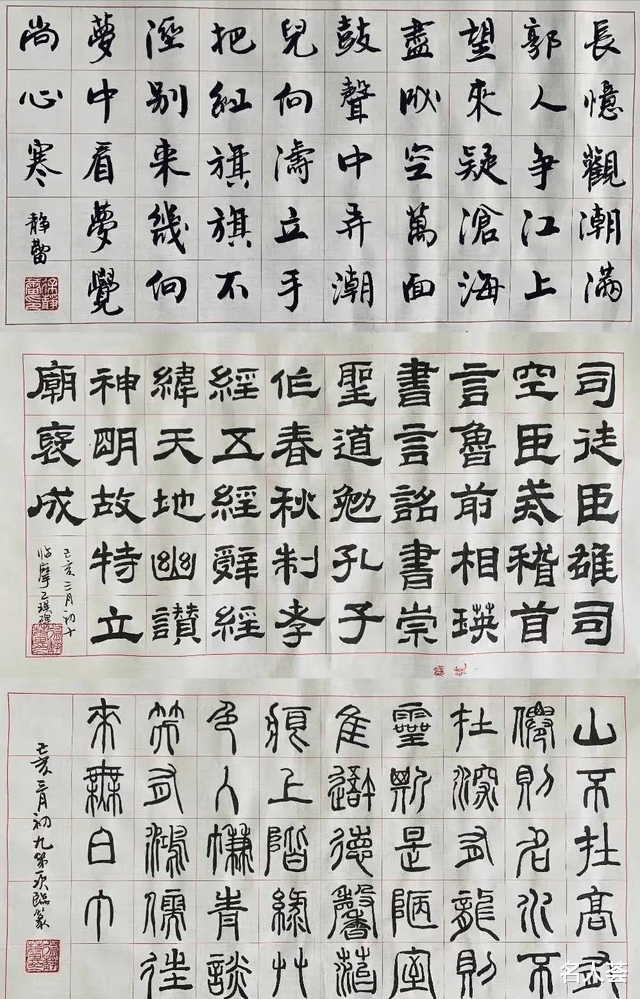 長憶觀潮滿
郭人争江上
望來疑滄海
盡成空萬面
鼓聲中弄潮
兒向濤立手
把紅旗旗不
溼别來幾向
夢中看夢覺
尚心寒
静蕾
司徒臣雄司
空臣戒稽首
言魯前相瑛
書言詔書崇
聖道勉孔子
作春秋制孝
經五經辭經
緯天地幽讚
神明故特立
廟褒成
己亥三月初十
临摩乙瑛碑
山不在高有
僊則名水不
在深有龍則
靈斯是陋室
惟吾德馨苔
痕上階綠艸
色入簾青談
笑有鴻儒往
來無白丁
己亥三月初九第一次臨篆
名人荟